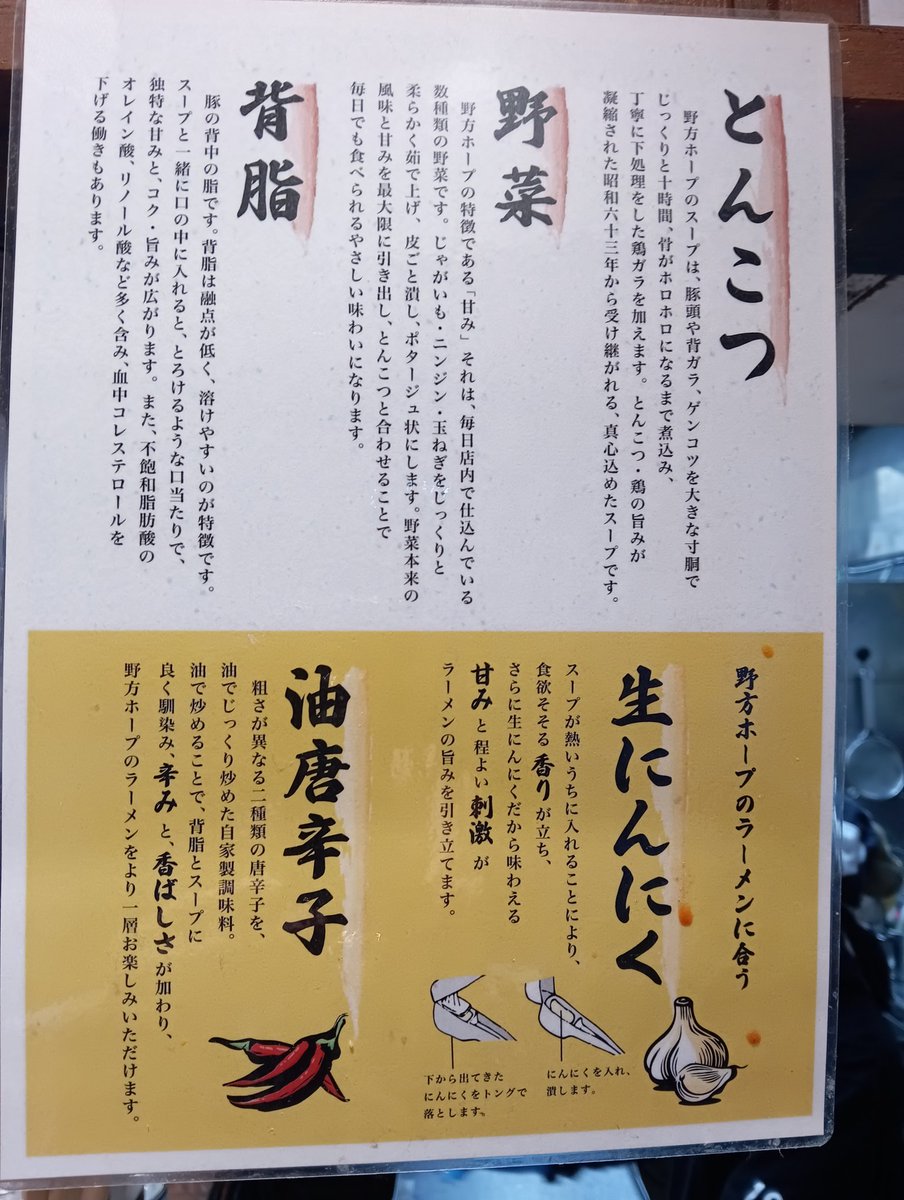 とんこつ
野方ホープのスープは、豚頭や背ガラ、ゲンコツを大きな寸胴で
じっくりと十時間、骨がホロホロになるまで煮込み、
丁寧に下処理をした鶏ガラを加えます。とんこつ・鶏の旨みが
凝縮された昭和六十三年から受け継がれる、真心込めたスープです。
野菜
野方ホープの特徴である「甘み」それは、毎日店内で仕込んでいる
数種類の野菜です。じゃがいも・ニンジン・玉ねぎをじっくりと
柔らかく茹で上げ、皮ごと潰し、ポタージュ状にします。野菜本来の
風味と甘みを最大限に引き出し、とんこつと合わせることで
毎日でも食べられるやさしい味わいになります。
背脂
豚の背中の脂です。背脂は融点が低く、溶けやすいのが特徴です。
スープと一緒に口の中に入れると、とろけるような口当たりで、
独特な甘みと、コク・旨みが広がります。また、不飽和脂肪酸の
オレイン酸、リノール酸など多く含み、血中コレステロールを
下げる働きもあります。
野方ホープのラーメンに合う
生にんにく
スープが熱いうちに入れることにより、
食欲そそる香りが立ち、
さらに生にんにくだから味わえる
甘みと程よい刺激が
ラーメンの旨みを引き立てます。
にんにくを入れ、
潰します。
下から出てきた
にんにくをトングで
落とします。
油唐辛子
粗さが異なる二種類の唐辛子を、
油でじっくり炒めた自家製調味料。
油で炒めることで、背脂とスープに
良く馴染み、辛みと、香ばしさが加わり、
野方ホープのラーメンをより一層お楽しみいただけます。